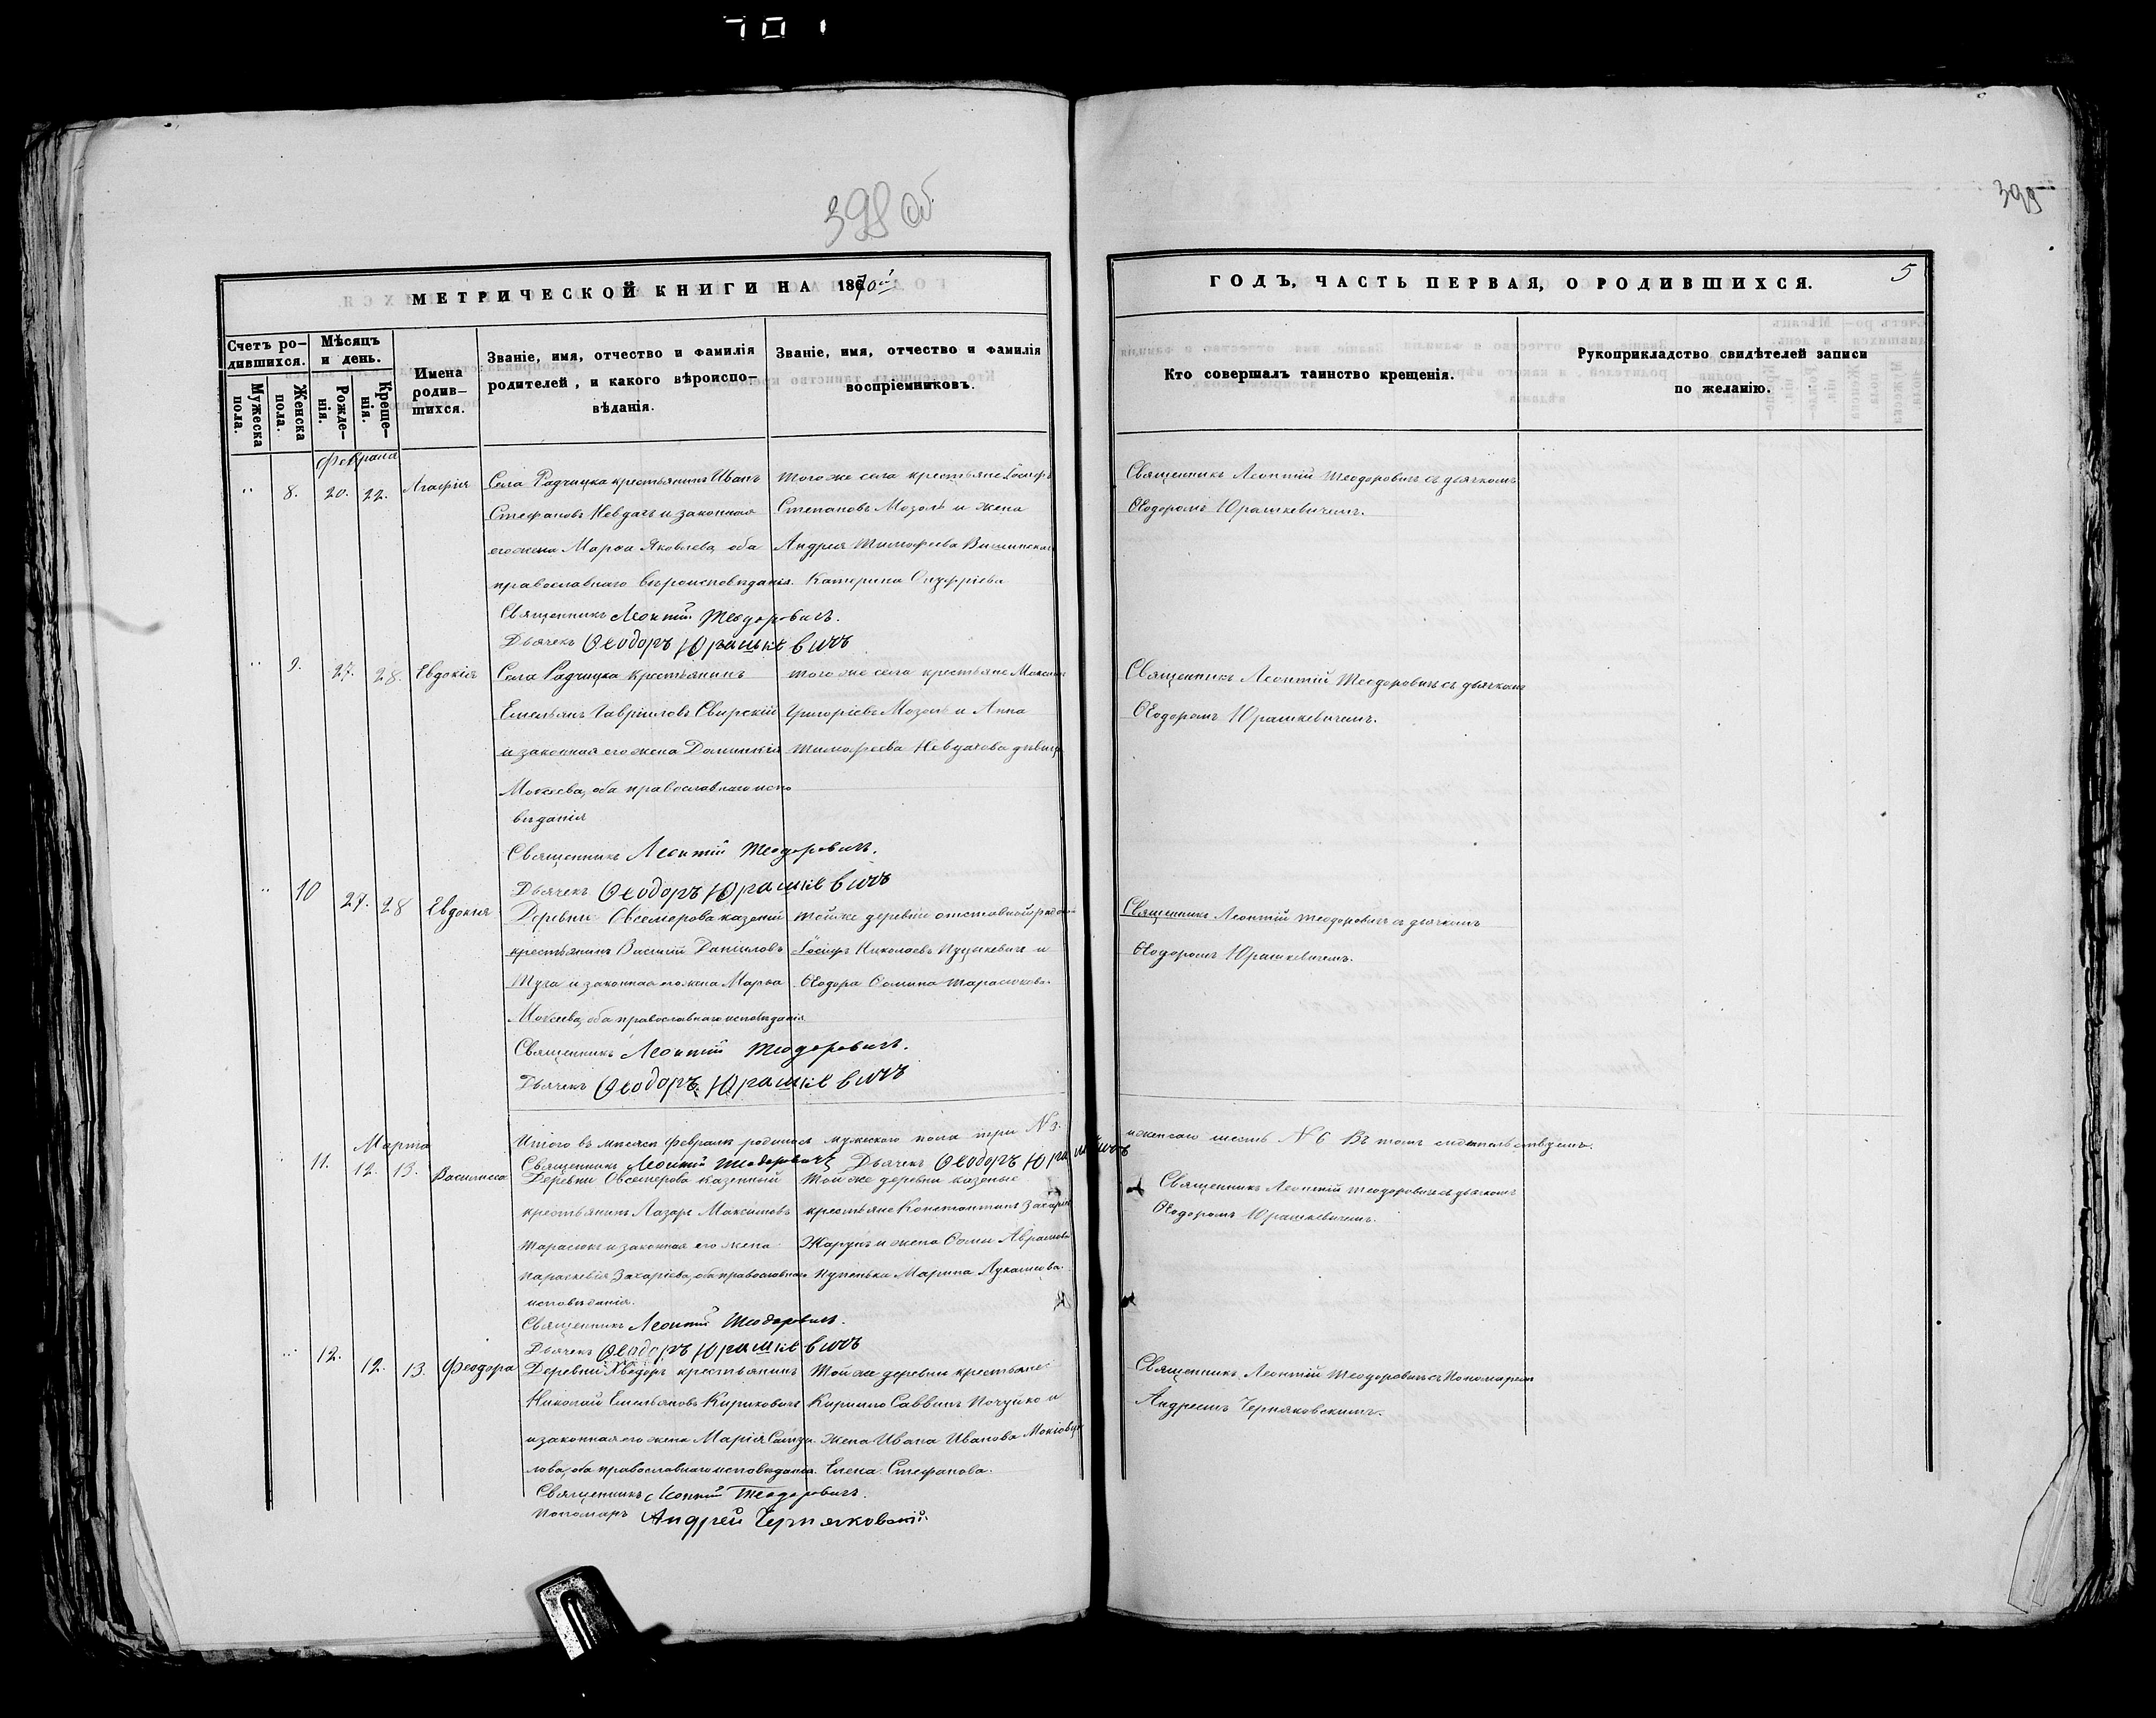 701
398 об
399
МЕТРИЧЕСКОЙ КНИГИ НА 1870й
ГОДЪ, ЧАСТЬ ПЕРВАЯ, О РОДИВШИХСЯ.
5
Счетъ родившихся.
Мужеска пола.
Женска пола.
Мѣсяцъ и день.
Рожденія.
Крещенія.
Имена родившихся.
Званіе, имя, отчество и фамилія
родителей, и какого вѣроисповѣданія.
Званіе, имя, отчество и фамилія
воспріемниковъ.
Кто совершалъ таинство крещенія.
Рукоприкладство свидѣтелей записи
по желанію.
Февраля
" 8. 20. 22. Агафія
Села Радчицка крестьянинъ Иванъ
Стефановъ Невдахъ и законная
его жена Марѳа Яковлева, оба
православнаго вѣроисповѣданія.
Священникъ Леонтій Теодоровичъ.
Дьячекъ Ѳеодоръ Юрашкевичъ
того же села крестьяне Іосифъ
Степановъ Мозоль и жена
Андрея Тимофеева
Катерина Онуфріева
Священникъ Леонтій Теодоровичъ съ дьячкомъ
Ѳеодоромъ Юрашкевичемъ.
" 9. 27. 28. Евдокія
Села Радчицка крестьянинъ
Емельянъ Гавріиловъ Свирскій
и законная его жена Домникія
Мокеева, оба православнаго испо
вѣданія
Священникъ Леонтій Теодоровичъ.
Дьячекъ Ѳеодоръ Юрашкевичъ
того же села крестьяне Максимъ
Григоріевъ Мозоль и Анна
Тимофеева Невдахова дѣвица
Священникъ Леонтій Теодоровичъ съ дьячкомъ
Ѳеодоромъ Юрашкевичемъ.
" 10 27. 28 Евдокія
Деревни Овсемерова казеный
крестьянинъ Василій Даніиловъ
Туга и законная его жена Марѳа
Мокеева, оба православнаго исповѣданія
Священникъ Леонтій Теодоровичъ.
Дьячекъ Ѳеодоръ Юрашкевичъ
Той же деревни отставной рядовой
Іосифъ Николаевъ и
Ѳеодора Ѳомина Тарасюкова.
Священникъ Леонтій Теодоровичъ съ дьячкомъ
Ѳеодоромъ Юрашкевичемъ.
Итого въ мѣсяцѣ Февралѣ родилось мужескаго пола три N 3.
и женскаго шесть N 6 Въ томъ свидѣтельствуемъ.
Священникъ Леонтій Теодоровичъ Дьячекъ Ѳеодоръ Юрашкевичъ
Марта
11. 12. 13. Василиса
Деревни Овсемерова казенный
крестьянинъ Лазарь Максимовъ
Тарасюкъ и законная его жена
Параскевія Захаріева, оба православнаго
исповѣданія.
Священникъ Леонтій Теодоровичъ.
Дьячекъ Ѳеодоръ Юрашкевичъ
Той же деревни казеные
крестьяне Константинъ
Жарунъ и жена Ѳомы Абрамова
Марина Лукашова.
Священникъ Леонтій Теодоровичъ съ дьячкомъ
Ѳеодоромъ Юрашкевичемъ.
12. 12. 13. Феодора
Деревни крестьянинъ
Николай Емельяновъ Кириковичъ
и законная его жена Марія Самуи
лова, оба православнаго исповѣданія.
Священникъ Леонтій Теодоровичъ.
Пономарь Андрей Черняковскій.
Той же деревни крестьяне
Кирилло Саввинъ Почуйко и
жена Ивана Иванова
Елена Стефанова.
Священникъ Леонтій Теодоровичъ съ Пономаремъ
Андреемъ Черняковскимъ.